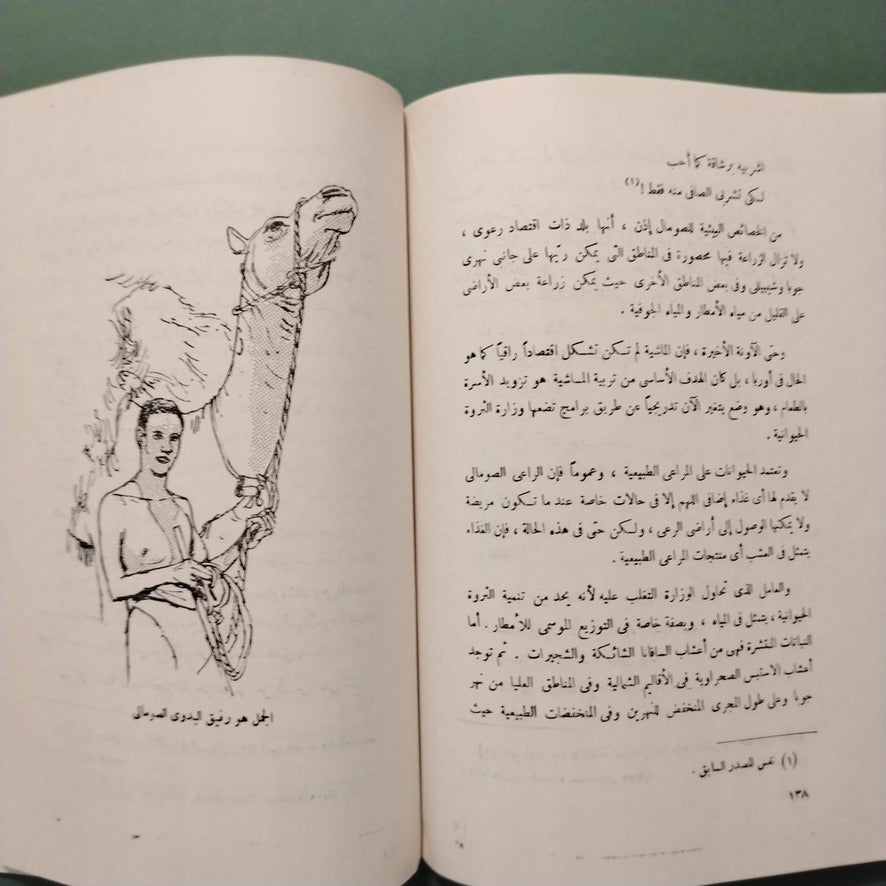 اشربيه برشاقة كما أحب
لكى تشربى الصافى منه فقط !(١)
من الخصائص البيئية للصومال إذن ، أنها بلد ذات اقتصاد رعوى ،
ولا تزال الزراعة فيها محصورة فى المناطق التى يمكن ريّها على جانبى نهرى
جوبا وشيبيلى وفى بعض المناطق الأخرى حيث يمكن زراعة بعض الأراضى
على القليل من مياه الأمطار والمياه الجوفية .
وحتى الآونة الأخيرة ، فإن الماشية لم تكن تشكل اقتصاداً راقياً كما هو
الحال فى أوربا ، بل كان الهدف الأساسى من تربية الماشية هو تزويد الأسرة
بالطعام ، وهو وضع يتغير الآن تدريجياً عن طريق برامج تضعها وزارة الثروة
الحيوانية .
وتعتمد الحيوانات على المراعى الطبيعية ، وعموماً فإن الراعى الصومالى
لا يقدم لها أى غذاء إضافى اللهم إلا فى حالات خاصة عند ما تكون مريضة
ولا يمكنها الوصول إلى أراضى الرعى ، ولكن حتى فى هذه الحالة ، فإن الغذاء
يتمثل فى العشب أى منتجات المراعى الطبيعية .
والعامل الذى تحاول الوزارة التغلب عليه لأنه يحد من تنمية الثروة
الحيوانية ، يتمثل فى المياه ، وبصفة خاصة فى التوزيع الموسمى للأمطار . أما
النباتات المنتشرة فهى من أعشاب السافانا الشائكة والشجيرات . ثم توجد
أعشاب الاستبس الصحراوية فى الأقاليم الشمالية وفى المناطق العليا من نهر
جوبا وعلى طول المجرى المنخفض للنهرين وفى المنخفضات الطبيعية حيث
(١) نفس المصدر السابق .
١٣٨
الجمل هو رفيق البدوى الصومالى